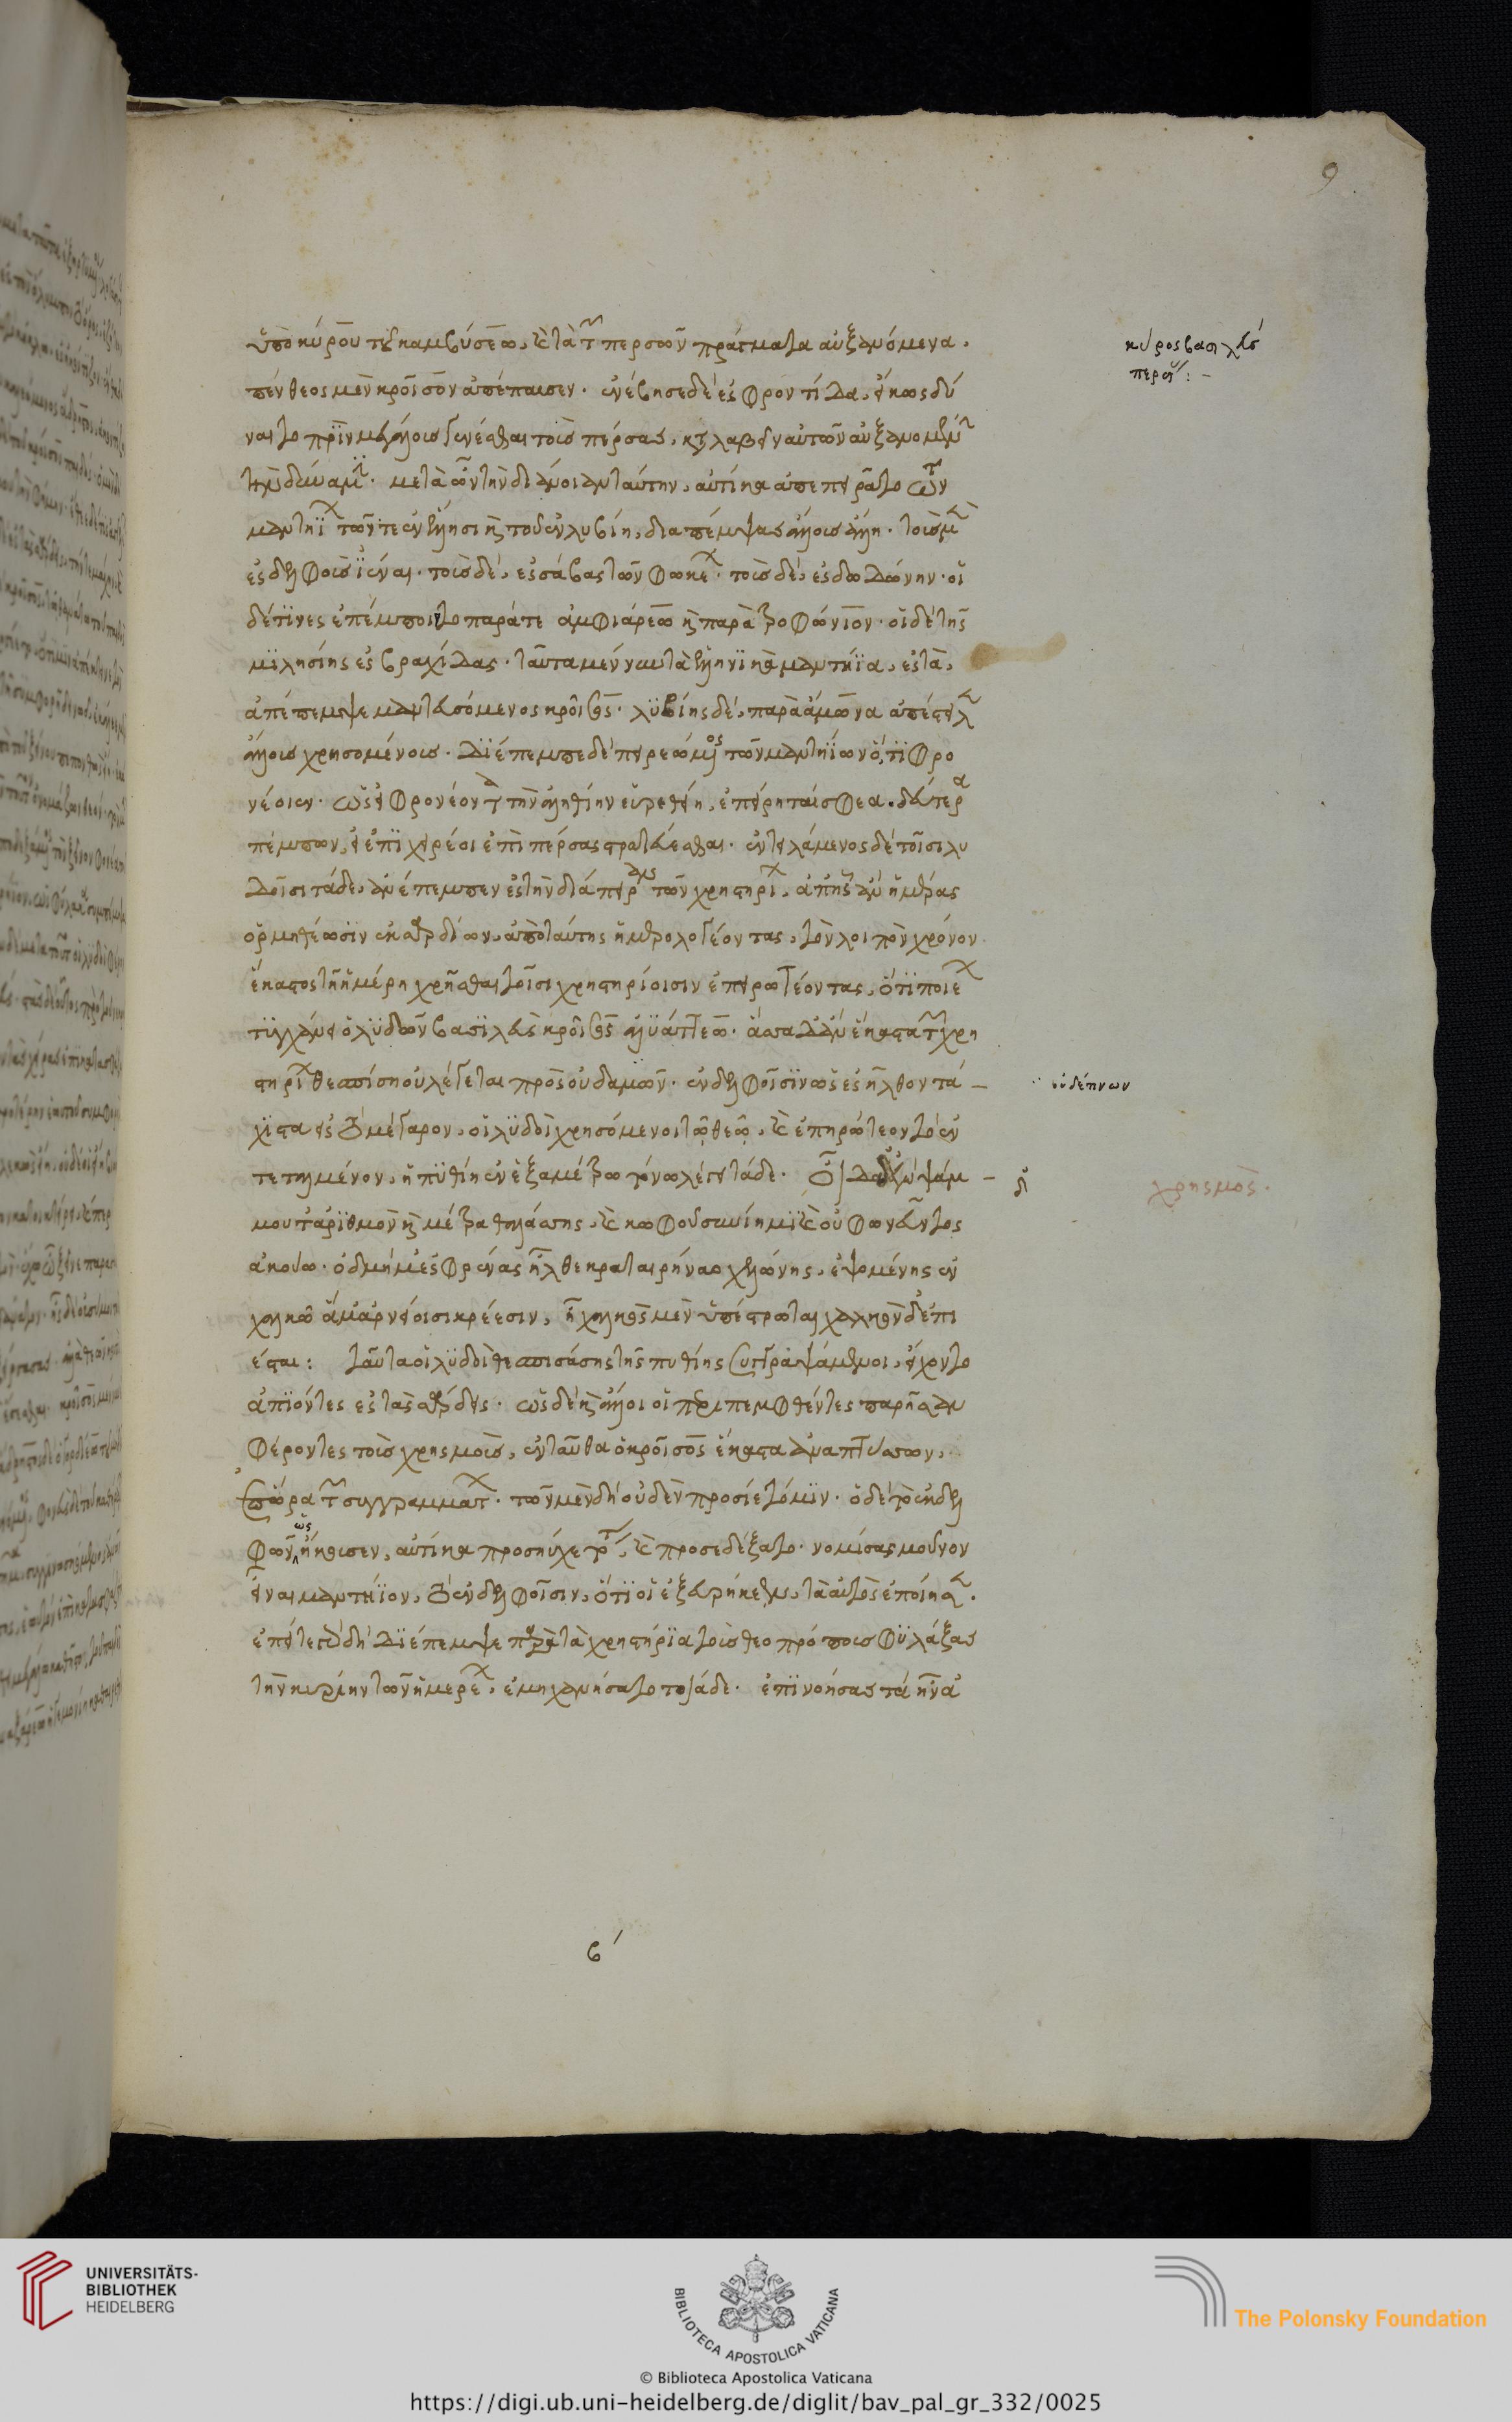 9
ὑπὸ κύρου τοῦ καμβύσεω, καὶ τὰ τῶν περσῶν πράγματα αὐξανόμενα,
πένθεος μὲν κροῖσον ἀπέπαυσεν. ἐνέβησε δὲ ἐς φροντίδα, εἴ κως δύ
ναιτο πρὶν μεγάλους γενέσθαι τοὺς πέρσας, καταλαβεῖν αὐτῶν αὐξανομένην
τὴν δύναμιν. μετὰ ὦν τὴν διάνοιαν ταύτην, αὐτίκα ἀπεπειρᾶτο τῶν
μαντηίων τῶν τε ἐν ἕλλησι καὶ τοῦ ἐν λυβίη, διαπέμψας ἄλλους ἄλλη. τοὺς μὲν
ἐς δελφοὺς ἰέναι. τοὺς δὲ, ἐς ἄβας τῶν φωκέων. τοὺς δὲ, ἐς δωδώνην. οἱ
δέ τινες ἐπέμποντο παρά τε ἀμφιάρεω καὶ παρὰ τροφώνιον. οἱ δὲ τῆς
μιλησίης ἐς βραχίδας. ταῦτα μέν νυν τὰ ἑλληνικὰ μαντήϊα, ἐς τὰ,
ἀπέπεμψε μαντευσόμενος κροῖσος. λυβίης δὲ, παρὰ ἄμμωνα ἀπέστελλε
ἄλλους χρησομένους. διέπεμπε δὲ πειρεώμενος τῶν μαντηίων ὅ,τι φρο
νέοιεν. ὡς εἰ φρονέοντα τὴν ἀληθίην εὑρεθείη, ἐπείρηταί σφεα δεύτερα
πέμπων, εἰ ἐπιχειρέοι ἐπὶ πέρσας στρατεύεσθαι. ἐντειλάμενος δὲ τοῖσι λυ
δοῖσι τάδε, ἀνέπεμπεν ἐς τὴν διάπειραν τῶν χρηστηρίων, ἀπ' ἧς ἂν ἡμέρας
ὁρμηθέωσιν ἐκ σαρδίων, ἀπὸ ταύτης ἡμερολογέοντας, τὸν λοιπὸν χρόνον
ἑκάστη ἡμέρη χρῆσθαι τοῖσι χρηστηρίοισιν ἐπειρωτέοντας, ὅτι ποιέων
τυγχάνει ὁ λυδῶν βασιλεὺς κροῖσος ἀλυάττεω. ἅσσα δ' ἂν ἕκαστα τῶν χρη
στηρίων θεσπίση οὐ λέγεται πρὸς οὐδαμῶν. ἐν δελφοῖσιν ὡς ἐσῆλθον τά
χιστα εἰς τὸ μέγαρον, οἱ λυδοὶ χρησόμενοι τῷ θεῷ, καὶ ἐπηρώτεον τὸ ἐν
τεταλμένον, ἡ πυθίη ἐν ἑξαμέτρω τόνω λέγει τάδε. οἶδα δ' ἐγὼ ψάμ
μου τ' ἀριθμὸν καὶ μέτρα θαλάσσης, καὶ κωφοῦ συνίημι καὶ οὐ φωνεῦντος
ἀκούω. ὀδμή μ' ἐς φρένας ἦλθε κραταιρήνοιο χελώνης, ἑψομένης ἐν
χαλκῷ ἅμ' ἀρνείοισι κρέεσιν, ᾗ χαλκὸς μὲν ὑπέστρωται χαλκὸν δ' ἐπι
έσται: ταῦτα οἱ λυδοὶ θεσπισάσης τῆς πυθίης συγγραψάμενοι, οἴχοντο
ἀπιόντες ἐς τὰς σάρδεις. ὡς δὲ καὶ ἄλλοι οἱ περιπεμφθέντες παρῆσαν
φέροντες τοὺς χρησμούς, ἐνταῦθα ὁ κροῖσος ἕκαστα ἀναπτύσσων,
ἐπώρα τῶν συγγραμμάτων. τῶν μὲν δὴ οὐδὲν προσίετό μιν. ὁ δὲ τὸ ἐκ δελ
φῶν ὡς ἤκουσεν, αὐτίκα προσηύχετο, καὶ προσεδέξατο. νομίσας μοῦνον
εἶναι μαντήϊον, τὸ ἐν δελφοῖσιν, ὅτι οἱ ἐξευρήκεε, τὰ αὐτὸς ἐποίησεν.
ἐπείτε γὰρ δὴ διέπεμψε παρὰ τὰ χρηστήρια τοὺς θεοπρόπους φυλάξας
τὴν κυρίην τῶν ἡμερέων, ἐμηχανήσατο τοιάδε. ἐπινοήσας τὰ ἦν ἀ
κύρος βασιλεύς
περσῶν: –
οὐδέπνων
χρησμὸς.
β΄
UNIVERSITÄTS-
BIBLIOTHEK
HEIDELBERG
BIBLIOTECA APOSTOLICA VATICANA
The Polonsky Foundation
© Biblioteca Apostolica Vaticana
https://digi.ub.uni-heidelberg.de/diglit/bav_pal_gr_332/0025